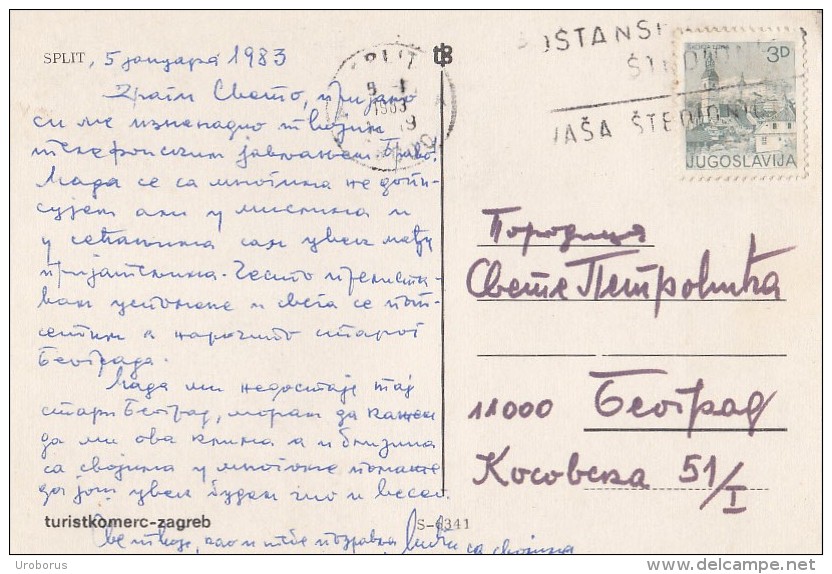 SPLIT, 5 јануара 1983
Драги Свето, пријатно
си ме изненадио твојим
телефонским јављањем. Браво.
Мада се са многима не допи-
сујем али у мислима и
у сећањима сам увек међу
пријатељима. Често прелиста-
вам успомене и свега се под-
сетим а нарочито старог
Београда.
Мада ми недостаје тај
стари Београд, морам да кажем
да ми ова клима а и близина
са својима у многоме помаже
да још увек будем чио и весео.
Све твоје, као и тебе поздравља са својима
turistkomerc-zagreb
S-6341
SPLIT
1983
POŠTANSK
VAŠA ŠTEDIONICA
3D
JUGOSLAVIJA
Породица
Свете Петровића
11000 Београд
Косовска 51/I
delcampe.net
Uroborus